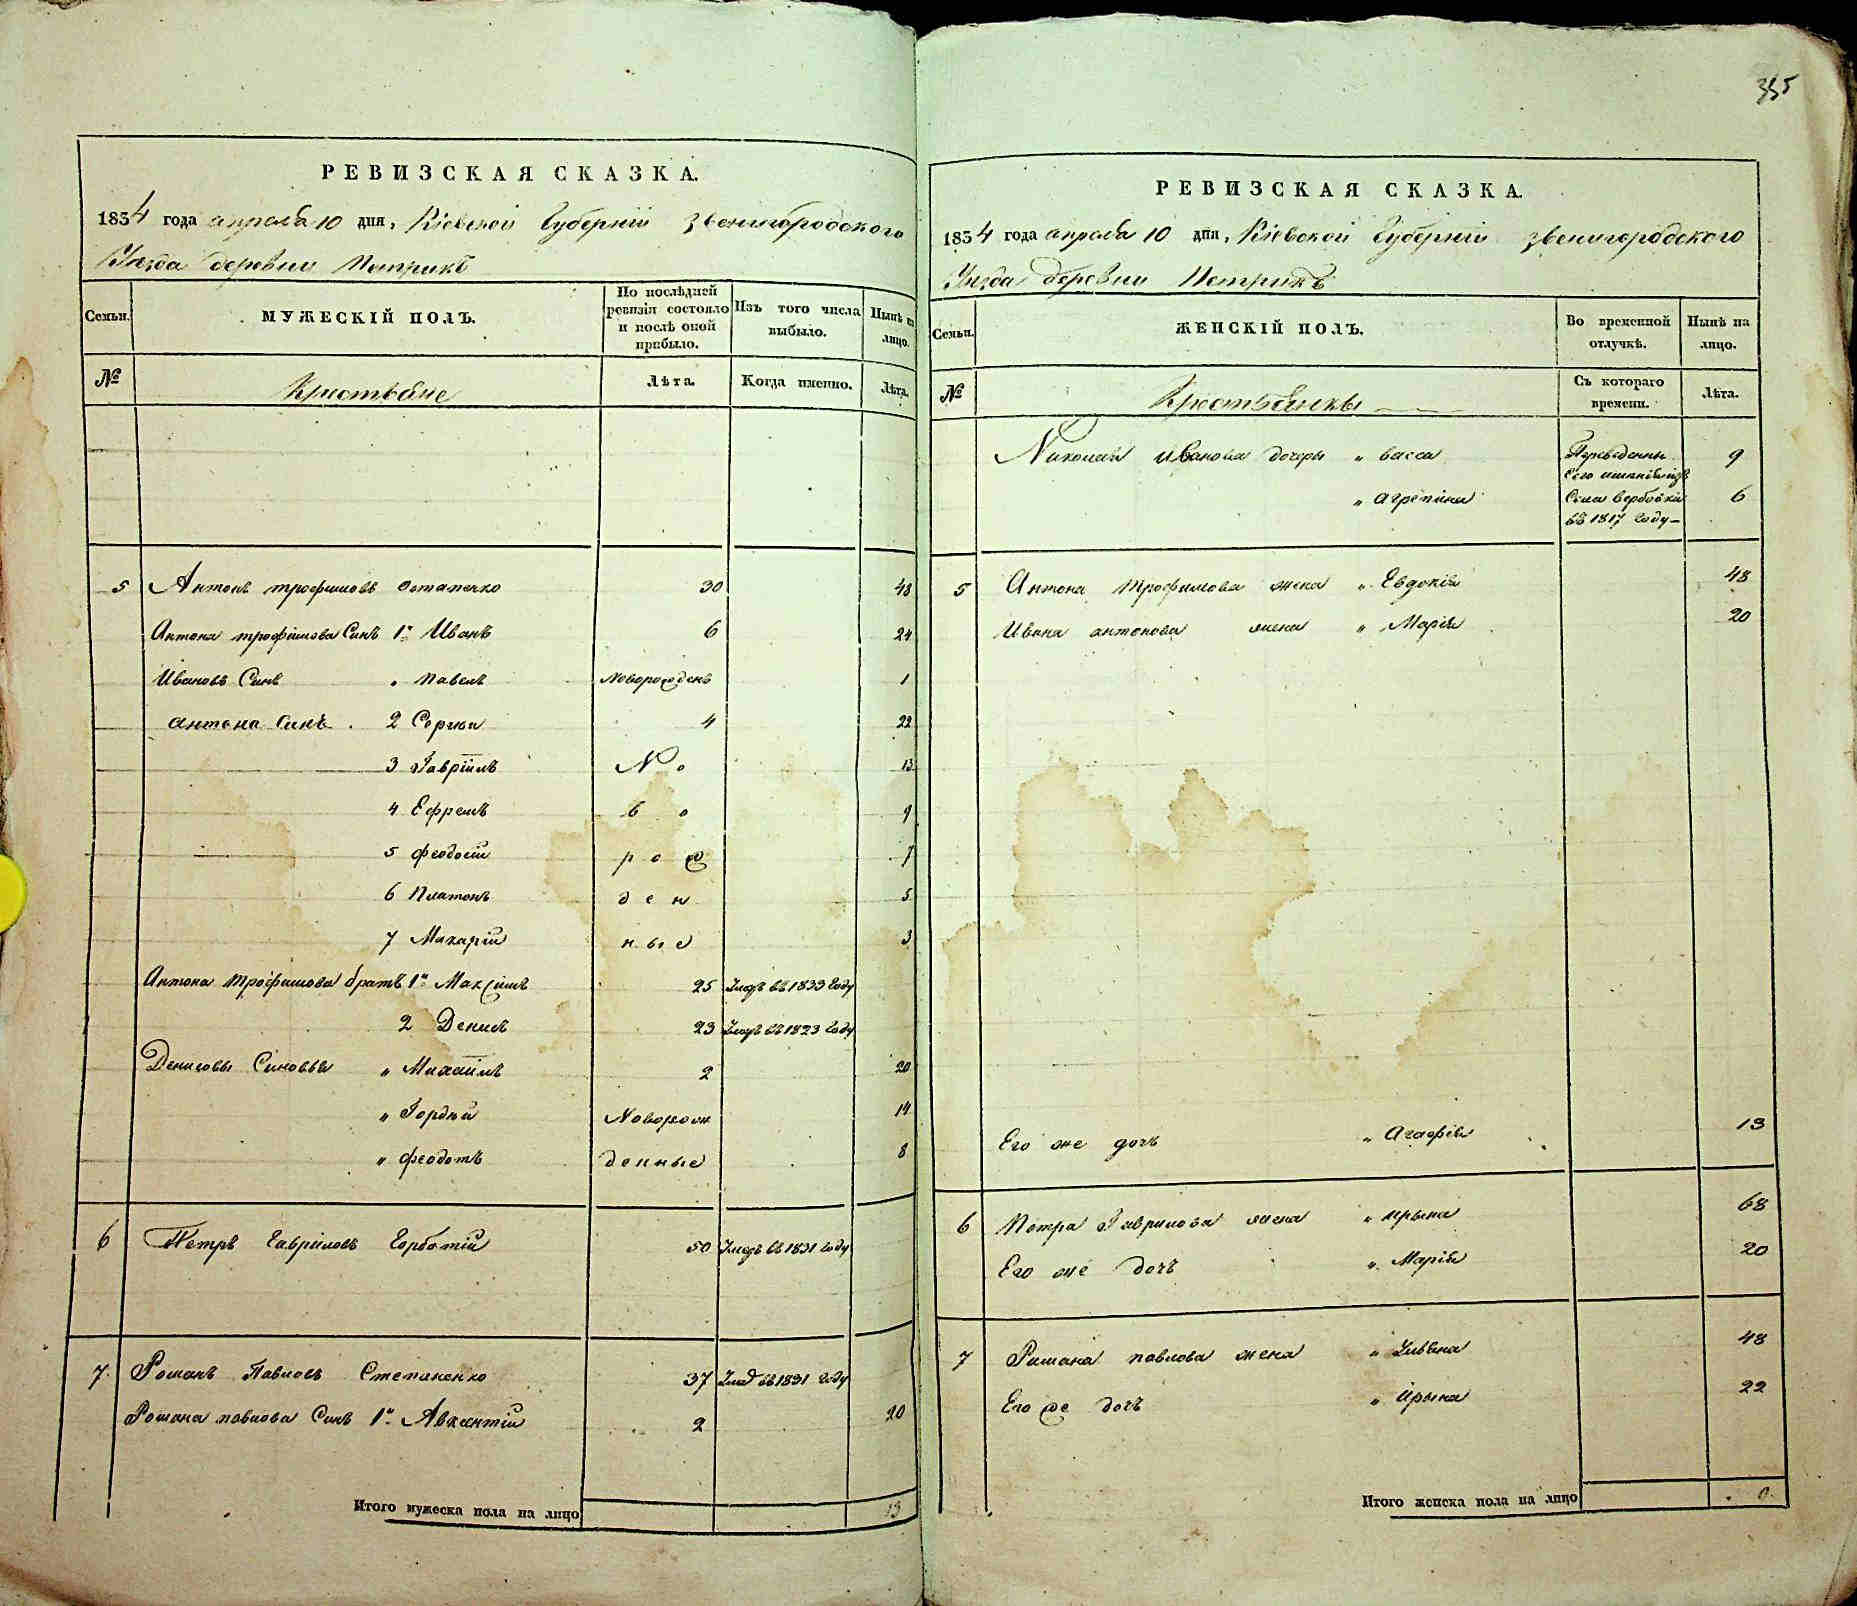 355
РЕВИЗСКАЯ СКАЗКА.
1834 года апреля 10 дня, Кіевской Губерніи Звенигородского
Уезда деревни Петрикъ
Семьи. МУЖЕСКІЙ ПОЛЪ. По послѣдней ревизіи состояло и послѣ оной прибыло. Изъ того числа выбыло. Нынѣ на лицо.
№ Крестьяне Лѣта. Когда именно. Лѣта.
5 Антонъ трофимовъ Остапенко 30 48
Антона трофимова Синъ 1й Иванъ 6 24
Ивановъ Синъ " Павелъ Новорожденъ 1
Антона Синъ 2 Сергий 4 22
3 Гавріилъ Но 13
4 Ефремъ во 9
5 Феодосій рож 7
6 Платонъ ден 5
7 Макарій ные 3
Антона Трофимова братъ 1й Максимъ 25 Умеръ въ 1833 Году
2 Денисъ 23 Умеръ въ 1823 Году
Денисовы Синовья " Михаилъ 2 20
" Гордий Новорож 14
" Феодотъ денные 8
6 Петръ Гавриловъ Горбатій 50 Умеръ въ 1831 Году
7 Романъ Павловъ Степаненко 37 Умеръ въ 1831 Году
Романа павлова Синъ 1й Авксентій 2 20
Итого мужеска пола на лицо 13
РЕВИЗСКАЯ СКАЗКА.
1834 года апреля 10 дня, Кіевской Губерніи Звенигородского
Уезда деревни Петрикъ
Семьи. ЖЕНСКІЙ ПОЛЪ. Во временной отлучкѣ. Нынѣ на лицо.
№ Крестьянки Съ котораго времени. Лѣта.
Николая Иванова дочеры " васса Переведенны 9
Сего имения изъ
" агрепина Села вербовки 6
въ 1817 году
5 Антона Трофимова жена " Евдокія 48
Ивана антонова жена " Марія 20
Его же дочъ " Агафія 13
6 Петра Гаврилова жена " ирына 68
Его же дочъ " Марія 20
7 Романа павлова жена " Ульяна 48
Его же дочъ " Ирына 22
Итого женска пола на лицо